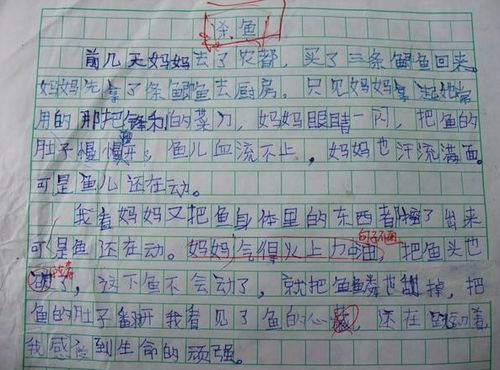 杀鱼
前几天妈妈去了农都，买了三条鲫鱼回来。
妈妈先拿了条鲫鱼去厨房。只见妈妈拿起她常
用的那把锋利的菜刀，妈妈眼睛一闪，把鱼的
肚子慢慢开，鱼儿血流不止，妈妈也汗流满面。
可是鱼儿还在动。
我看妈妈又把鱼身体里的东西都了出来
可是鱼还在动。妈妈气得火上力 句子不通 把鱼头也
了，这下鱼不会动了，就把鱼鳞也掉，把
鱼的肚子翻开我看见了鱼的心，还在动着，
我感到生命的顽强。